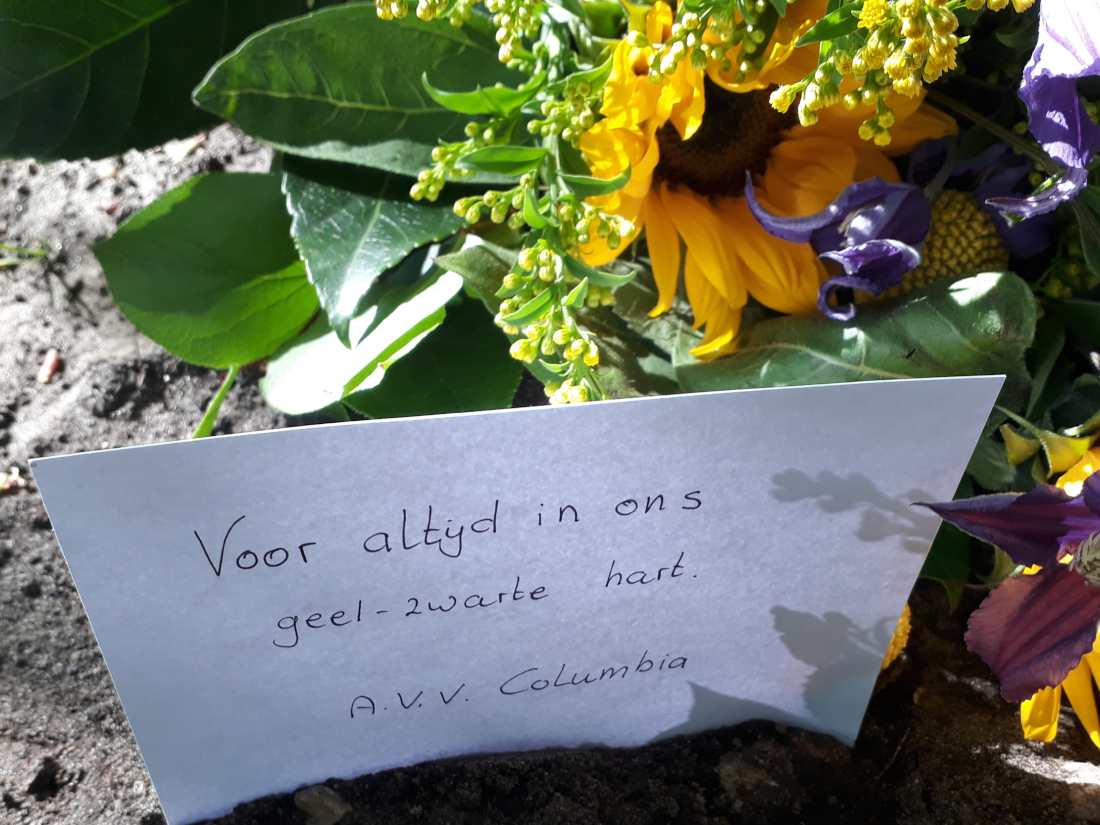 Voor altijd in ons
geel-zwarte hart.
A.V.V. Columbia